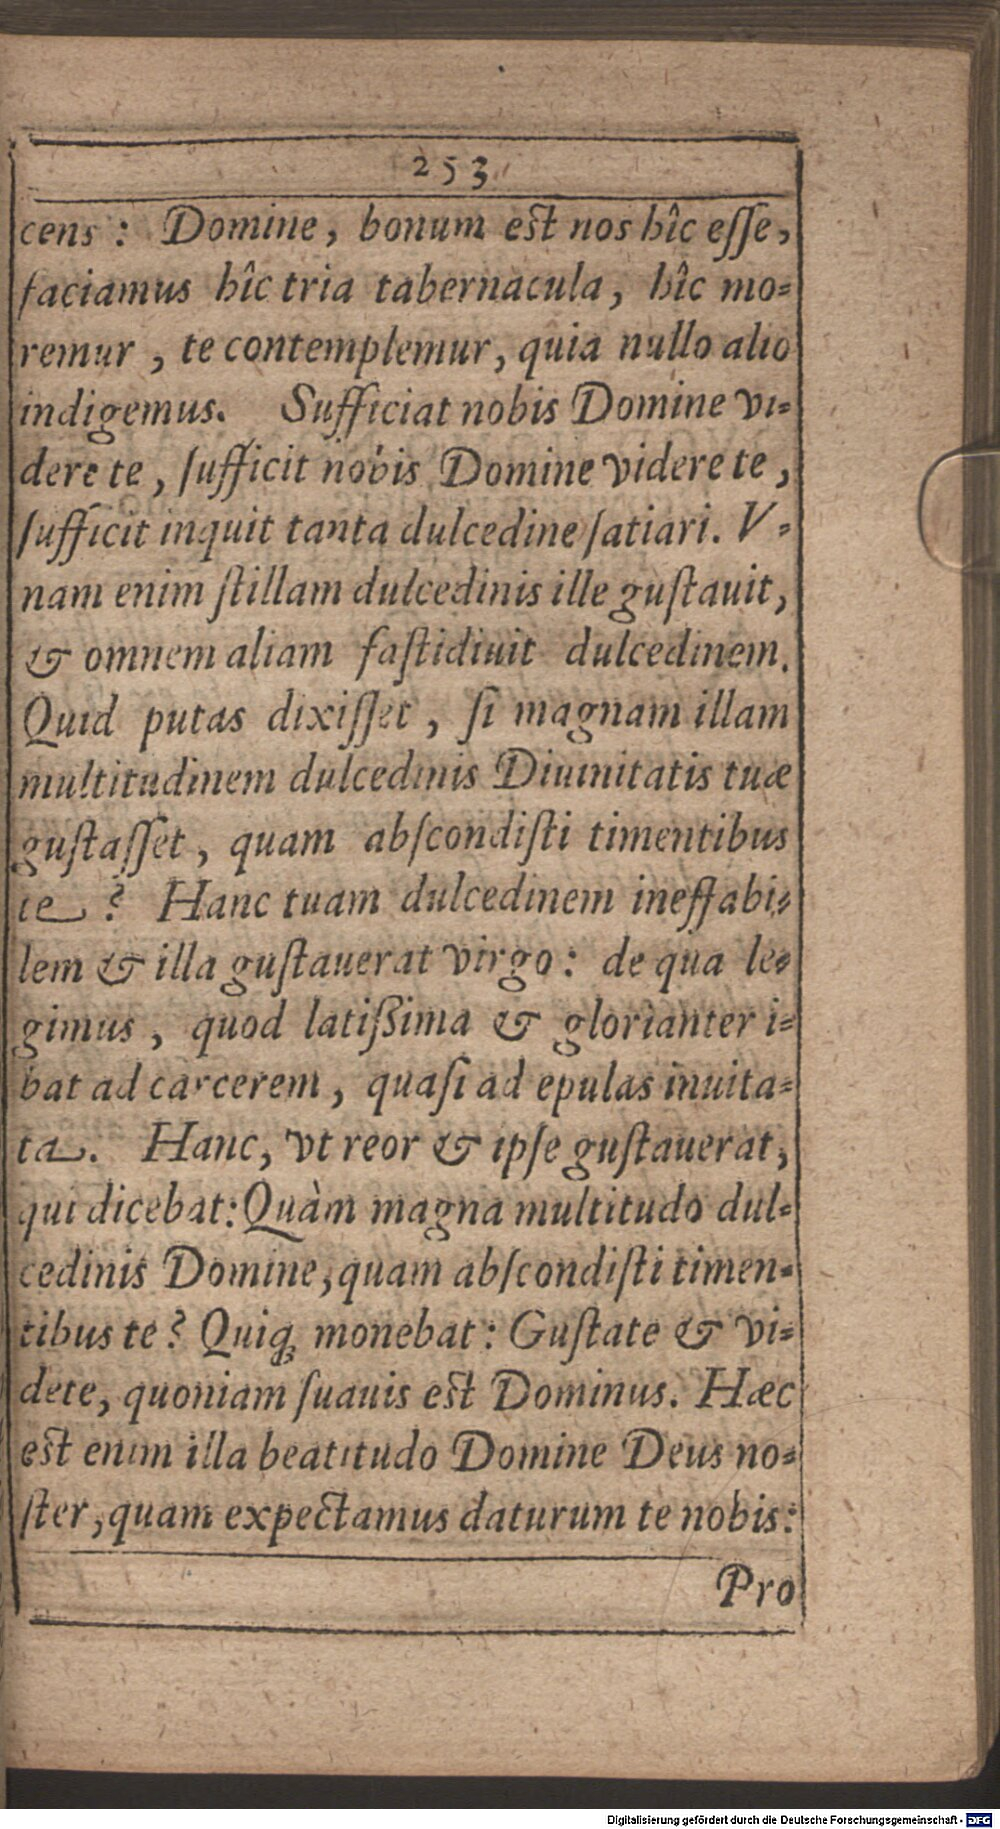 253
cens : Domine, bonum est nos hîc eſſe,
faciamus hîc tria tabernacula, hîc mo-
remur, te contemplemur, quia nullo alio
indigemus. Sufficiat nobis Domine vi-
dere te, ſufficit nobis Domine videre te,
ſufficit inquit tanta dulcedine ſatiari. V-
nam enim ſtillam dulcedinis ille guſtauit,
& omnem aliam faſtidiuit dulcedinem.
Quid putas dixiſſet, ſi magnam illam
multitudinem dulcedinis Diuinitatis tuæ
guſtaſſet, quam abſcondiſti timentibus
te ? Hanc tuam dulcedinem ineffabi-
lem & illa guſtauerat virgo : de qua le-
gimus, quod latißima & glorianter i-
bat ad carcerem, quaſi ad epulas inuita-
ta. Hanc, vt reor & ipſe guſtauerat,
qui dicebat: Quàm magna multitudo dul-
cedinis Domine, quam abſcondiſti timen-
tibus te? Quiq; monebat: Guſtate & vi-
dete, quoniam ſuauis est Dominus. Hæc
est enim illa beatitudo Domine Deus no-
ſter, quam expectamus daturum te nobis:
Pro
Digitalisierung gefördert durch die Deutsche Forschungsgemeinschaft - DFG